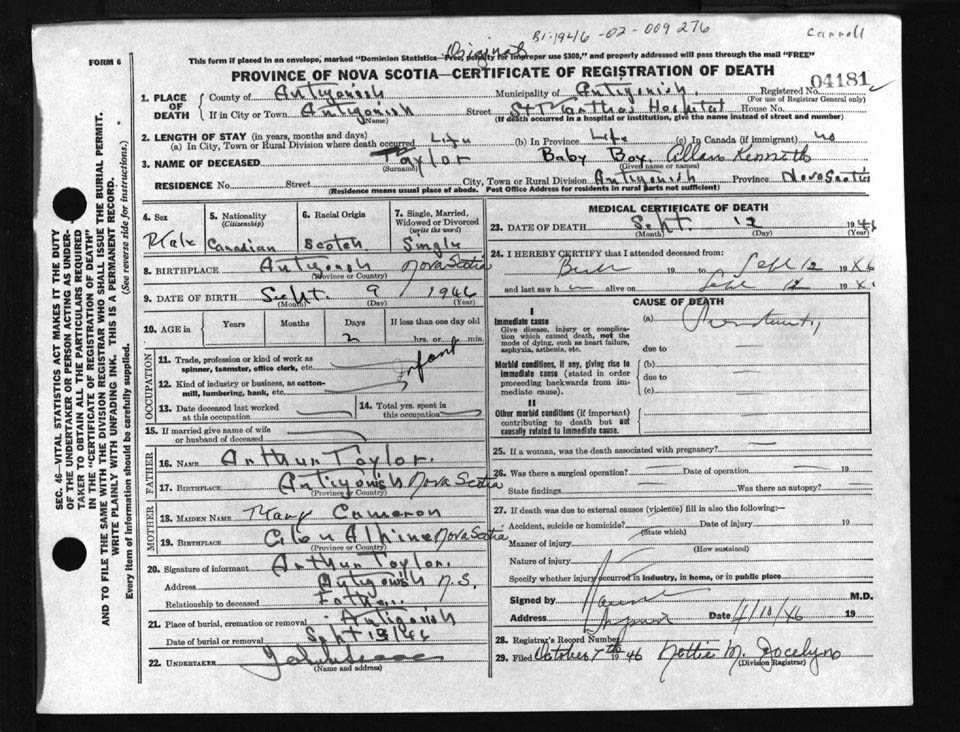 B1:1946-02-009276
Carroll
Original
FORM 6
This form if placed in an envelope, marked "Dominion Statistics—Free, penalty for improper use $300," and properly addressed will pass through the mail "FREE"
PROVINCE OF NOVA SCOTIA—CERTIFICATE OF REGISTRATION OF DEATH
Registered No. 04181
(For use of Registrar General only)
1. PLACE OF DEATH
County of Antigonish Municipality of Antigonish
If in City or Town Antigonish Street St Marthas Hospital House No.
(Name) (If death occurred in a hospital or institution, give the name instead of street and number)
2. LENGTH OF STAY (in years, months and days)
(a) In City, Town or Rural Division where death occurred Life (b) In Province Life (c) In Canada (if immigrant) no
3. NAME OF DECEASED Taylor Baby Boy, Allan Kenneth
(Surname) (Given name or names)
RESIDENCE No. Street City, Town or Rural Division Antigonish Province Nova Scotia
(Residence means usual place of abode. Post Office Address for residents in rural parts not sufficient)
4. Sex
Male
5. Nationality (Citizenship)
Canadian
6. Racial Origin
Scotch
7. Single, Married, Widowed or Divorced (write the word)
Single
8. BIRTHPLACE Antigonish Nova Scotia
(Province or Country)
9. DATE OF BIRTH Sept. 9 1946
(Month) (Day) (Year)
10. AGE in
Years Months Days If less than one day old
2 hrs. or min.
OCCUPATION
11. Trade, profession or kind of work as spinner, teamster, office clerk, etc.
Infant
12. Kind of industry or business, as cotton-mill, lumbering, bank, etc.
13. Date deceased last worked at this occupation
14. Total yrs. spent in this occupation
15. If married give name of wife or husband of deceased
FATHER
16. NAME Arthur Taylor.
17. BIRTHPLACE Antigonish Nova Scotia
(Province or Country)
MOTHER
18. MAIDEN NAME Mary Cameron
19. BIRTHPLACE Glen Alpine Nova Scotia
(Province or Country)
20. Signature of informant Arthur Taylor.
Address Antigonish N.S.
Relationship to deceased Father.
21. Place of burial, cremation or removal Antigonish
Date of burial or removal Sept 13/46
22. UNDERTAKER
(Name and address)
MEDICAL CERTIFICATE OF DEATH
23. DATE OF DEATH Sept. 12 1946
(Month) (Day) (Year)
24. I HEREBY CERTIFY that I attended deceased from:
19 to Sept 12 1946
and last saw h alive on Sept 12 19
CAUSE OF DEATH
I
Immediate cause
Give disease, injury or complication which caused death, not the mode of dying, such as heart failure, asphyxia, asthenia, etc.
(a) Prematurity
due to
Morbid conditions, if any, giving rise to immediate cause (stated in order proceeding backwards from immediate cause).
(b)
due to
(c)
II
Other morbid conditions (if important) contributing to death but not causally related to immediate cause.
25. If a woman, was the death associated with pregnancy?
26. Was there a surgical operation? Date of operation 19
State findings Was there an autopsy?
27. If death was due to external causes (violence) fill in also the following:—
Accident, suicide or homicide? Date of injury 19
(State which)
Manner of injury
(How sustained)
Nature of injury
Specify whether injury occurred in industry, in home, or in public place
Signed by M.D.
Address Date 4/10/46 19
28. Registrar's Record Number
29. Filed October 7th 1946 Nottie M. Jocelyn
(Division Registrar)
SEC. 46—VITAL STATISTICS ACT MAKES IT THE DUTY
OF THE UNDERTAKER OR PERSON ACTING AS UNDER-
TAKER TO OBTAIN ALL THE PARTICULARS REQUIRED
IN THE "CERTIFICATE OF REGISTRATION OF DEATH"
AND TO FILE THE SAME WITH THE DIVISION REGISTRAR WHO SHALL ISSUE THE BURIAL PERMIT.
WRITE PLAINLY WITH UNFADING INK. THIS IS A PERMANENT RECORD.
Every item of information should be carefully supplied. (See reverse side for instructions.)